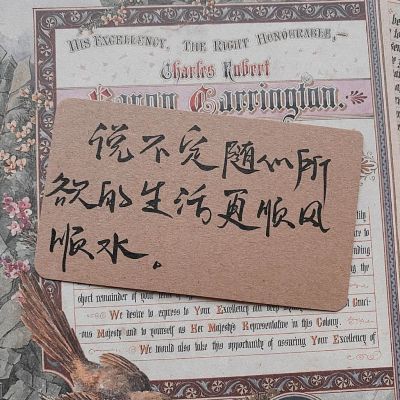 HIS EXCELLENCY, THE RIGHT HONOURABLE,
Charles Robert
Baron Carrington.
说不定随心所
欲的生活更顺风
顺水。
short remainder of your
We desire to express to Your Excellency our deep
ous Majesty and to yourself as Her Majesty's Representative in this Colony.
We would also take this opportunity of assuring Your Excellency of